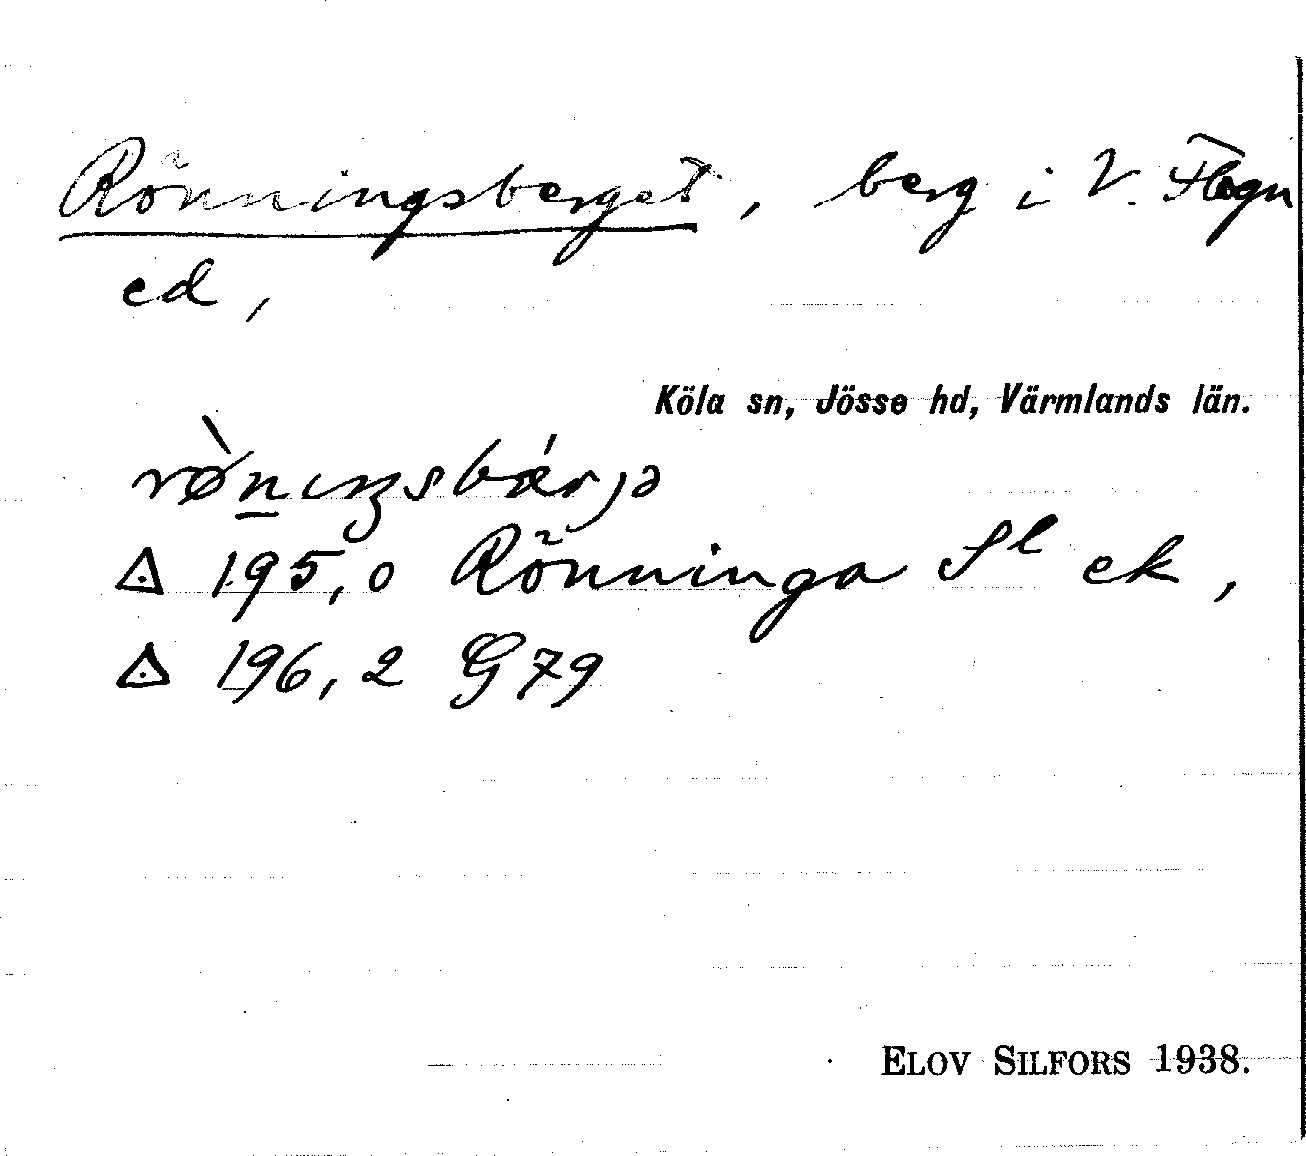 Rönningsberget, berg i V. Flogn
ed,
Köla sn, Jösse hd, Värmlands län.
rø̀nıŋsbǽrjə
△ 195,0 Rönninga Sl ek,
△ 196,2 G 79
ELOV SILFORS 1938.